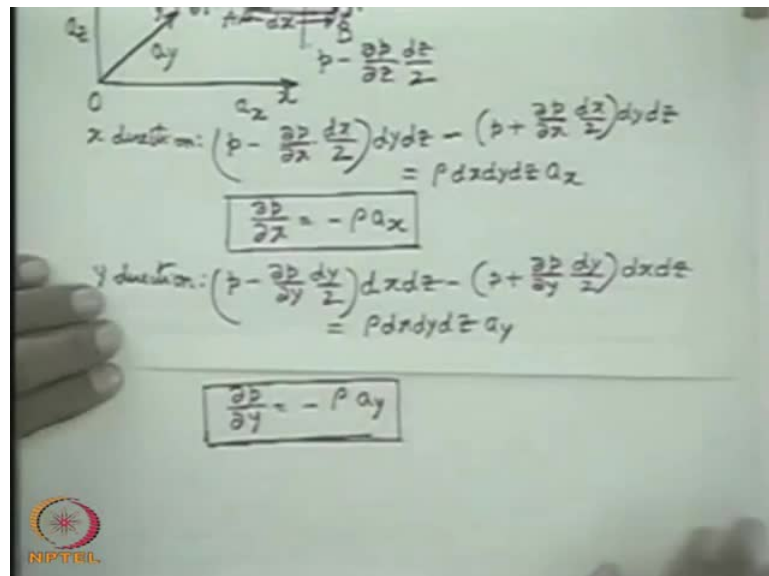 az
ay
dx
B
p - ∂p/∂z dz/2
O
ax x
x direction: (p - ∂p/∂x dx/2) dydz - (p + ∂p/∂x dx/2) dydz
= ρ dxdydz ax
∂p/∂x = - ρ ax
y direction: (p - ∂p/∂y dy/2) dxdz - (p + ∂p/∂y dy/2) dxdz
= ρ dxdydz ay
∂p/∂y = - ρ ay
NPTEL